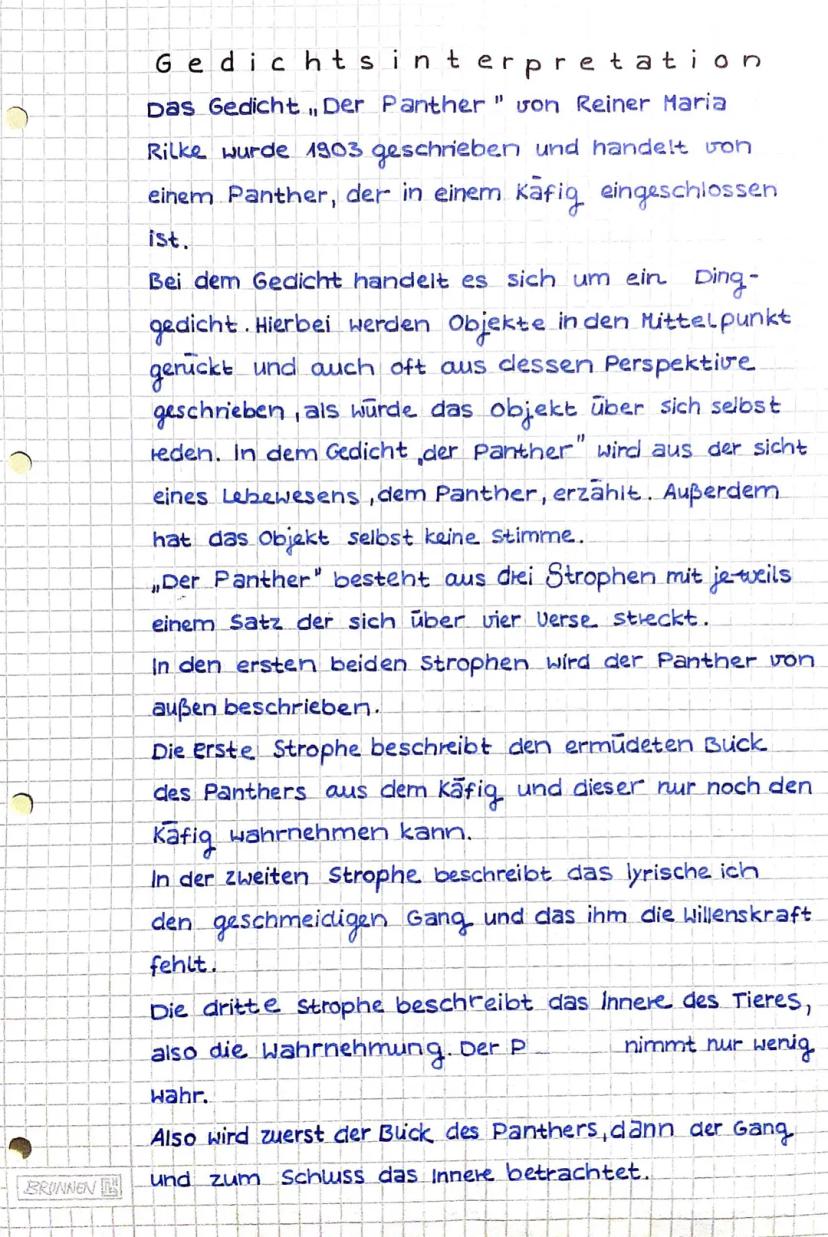 Gedichtsinterpretation
Das Gedicht „Der Panther" von Reiner Maria
Rilke wurde 1903 geschrieben und handelt von
einem Panther, der in einem Käfig eingeschlossen
ist.
Bei dem Gedicht handelt es sich um ein Ding-
gedicht. Hierbei werden Objekte in den Mittelpunkt
gerückt und auch oft aus dessen Perspektive
geschrieben, als würde das Objekt über sich selbst
reden. In dem Gedicht „der Panther" wird aus der sicht
eines Lebewesens, dem Panther, erzählt. Außerdem
hat das Objekt selbst keine Stimme.
„Der Panther" besteht aus drei Strophen mit jeweils
einem Satz der sich über vier Verse streckt.
In den ersten beiden Strophen wird der Panther von
außen beschrieben.
Die Erste Strophe beschreibt den ermüdeten Blick
des Panthers aus dem Käfig und dieser nur noch den
Käfig wahrnehmen kann.
In der zweiten Strophe beschreibt das lyrische ich
den geschmeidigen Gang und das ihm die Willenskraft
fehlt.
Die dritte Strophe beschreibt das Innere des Tieres,
also die Wahrnehmung. Der P nimmt nur wenig
wahr.
Also wird zuerst der Blick des Panthers, dann der Gang
und zum Schluss das Innere betrachtet.
BRUNNEN